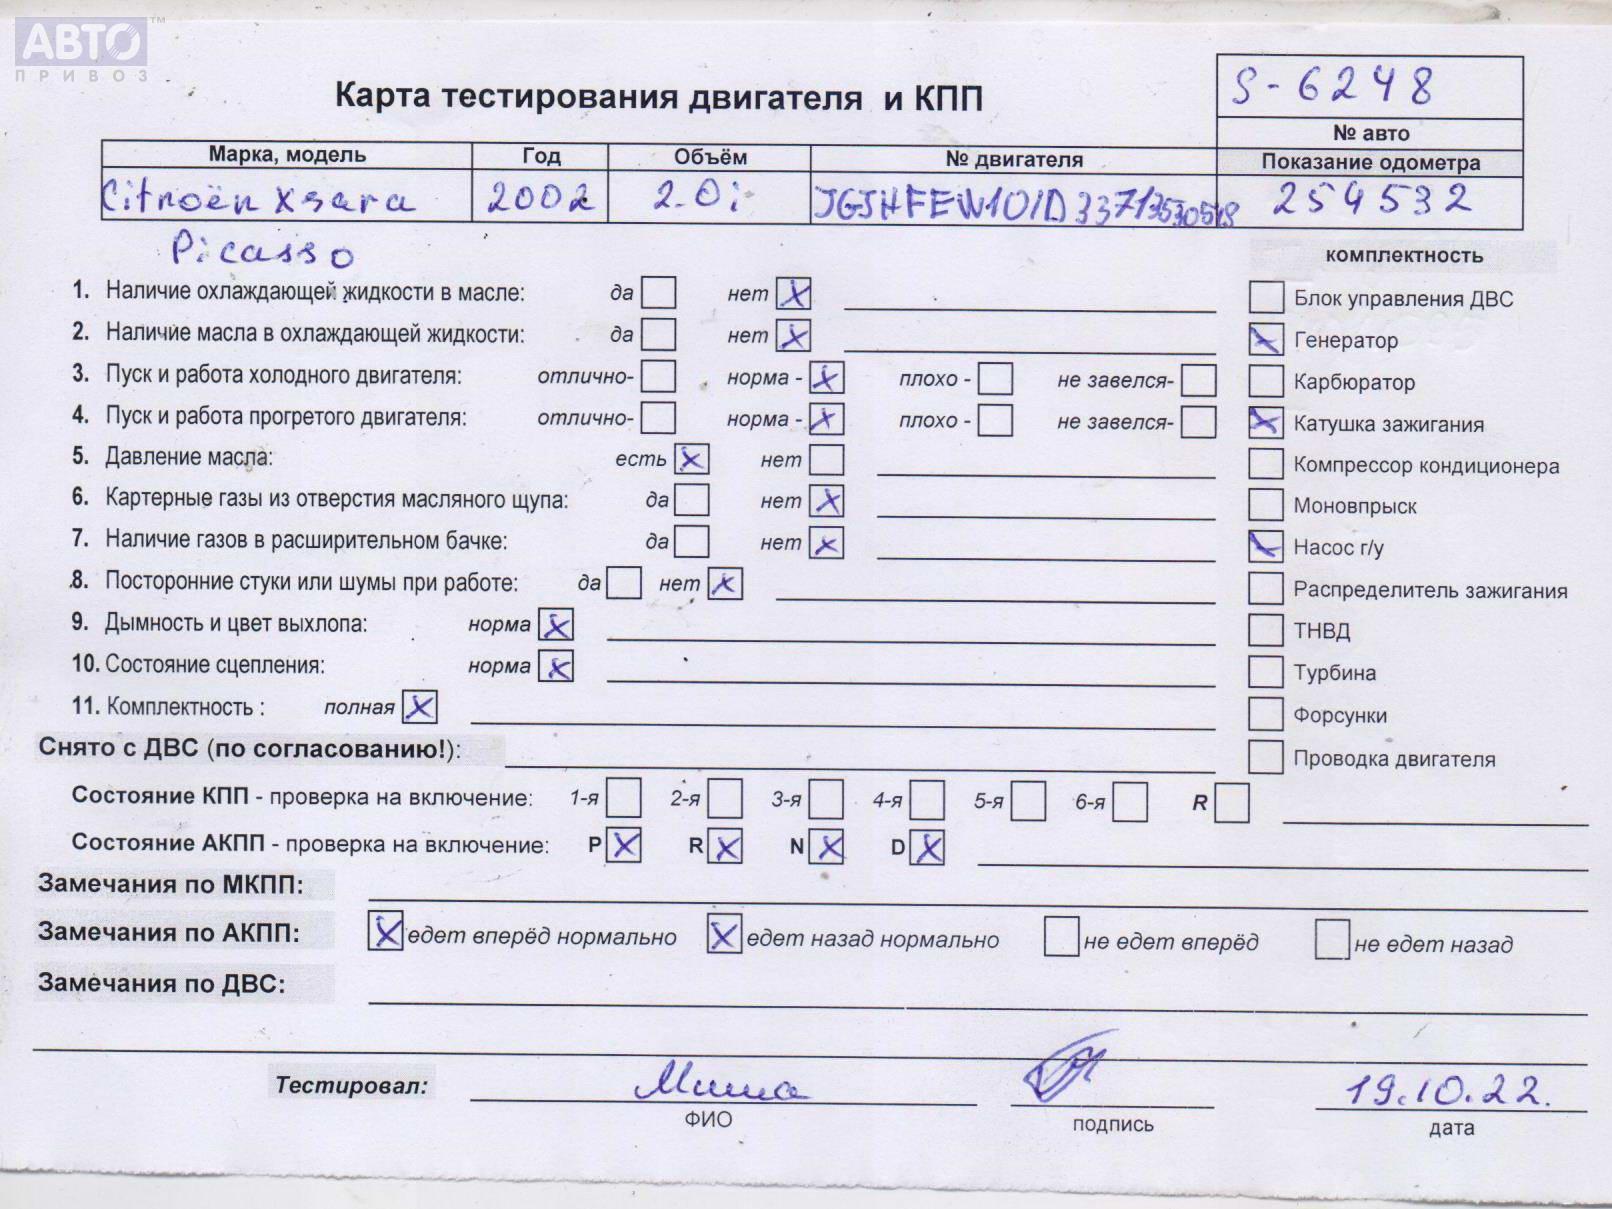 АВТО™
ПРИВОЗ
Карта тестирования двигателя и КПП
S-6248
№ авто
Марка, модель Год Объём № двигателя Показание одометра
Citroën Xsara 2002 2.0i 254532
Picasso
комплектность
1. Наличие охлаждающей жидкости в масле: да нет X
Блок управления ДВС
2. Наличие масла в охлаждающей жидкости: да нет X
X Генератор
3. Пуск и работа холодного двигателя: отлично- норма - X плохо - не завелся-
Карбюратор
4. Пуск и работа прогретого двигателя: отлично- норма - X плохо - не завелся-
X Катушка зажигания
5. Давление масла: есть X нет
Компрессор кондиционера
6. Картерные газы из отверстия масляного щупа: да нет X
Моновпрыск
7. Наличие газов в расширительном бачке: да нет X
X Насос г/у
8. Посторонние стуки или шумы при работе: да нет X
Распределитель зажигания
9. Дымность и цвет выхлопа: норма X
ТНВД
10. Состояние сцепления: норма X
Турбина
11. Комплектность : полная X
Форсунки
Снято с ДВС (по согласованию!):
Проводка двигателя
Состояние КПП - проверка на включение: 1-я 2-я 3-я 4-я 5-я 6-я R
Состояние АКПП - проверка на включение: P X R X N X D X
Замечания по МКПП:
Замечания по АКПП: X едет вперёд нормально X едет назад нормально не едет вперёд не едет назад
Замечания по ДВС:
Тестировал: Миша 19.10.22.
ФИО подпись дата